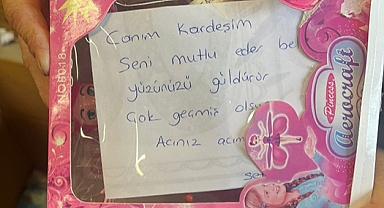 Canım Kardeşim
Seni mutlu eder be
yüzünüzü güldürür
Çok geçmiş olsu
Acınız acım
Princess
Aerocraft
NO8018